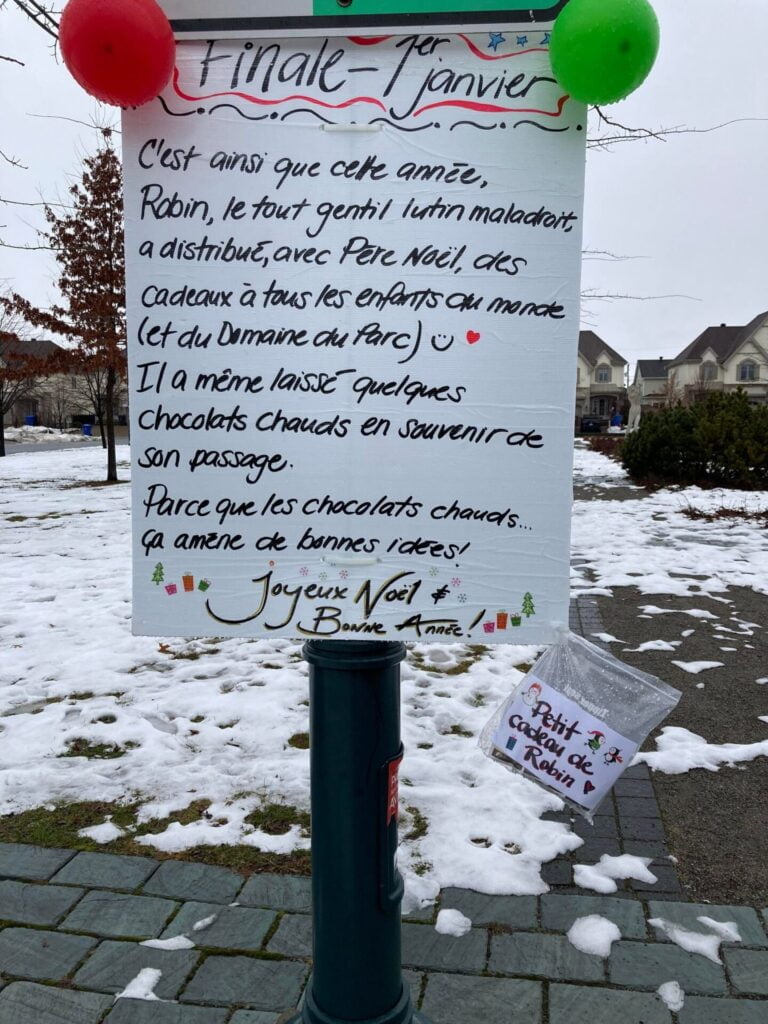 Finale - 1er janvier
C'est ainsi que cette année,
Robin, le tout gentil lutin maladroit,
a distribué, avec Père Noël, des
cadeaux à tous les enfants du monde
(et du Domaine du Parc)
Il a même laissé quelques
chocolats chauds en souvenir de
son passage.
Parce que les chocolats chauds...
ça amène de bonnes idées!
Joyeux Noël &
Bonne Année!
Petit
cadeau de
Robin